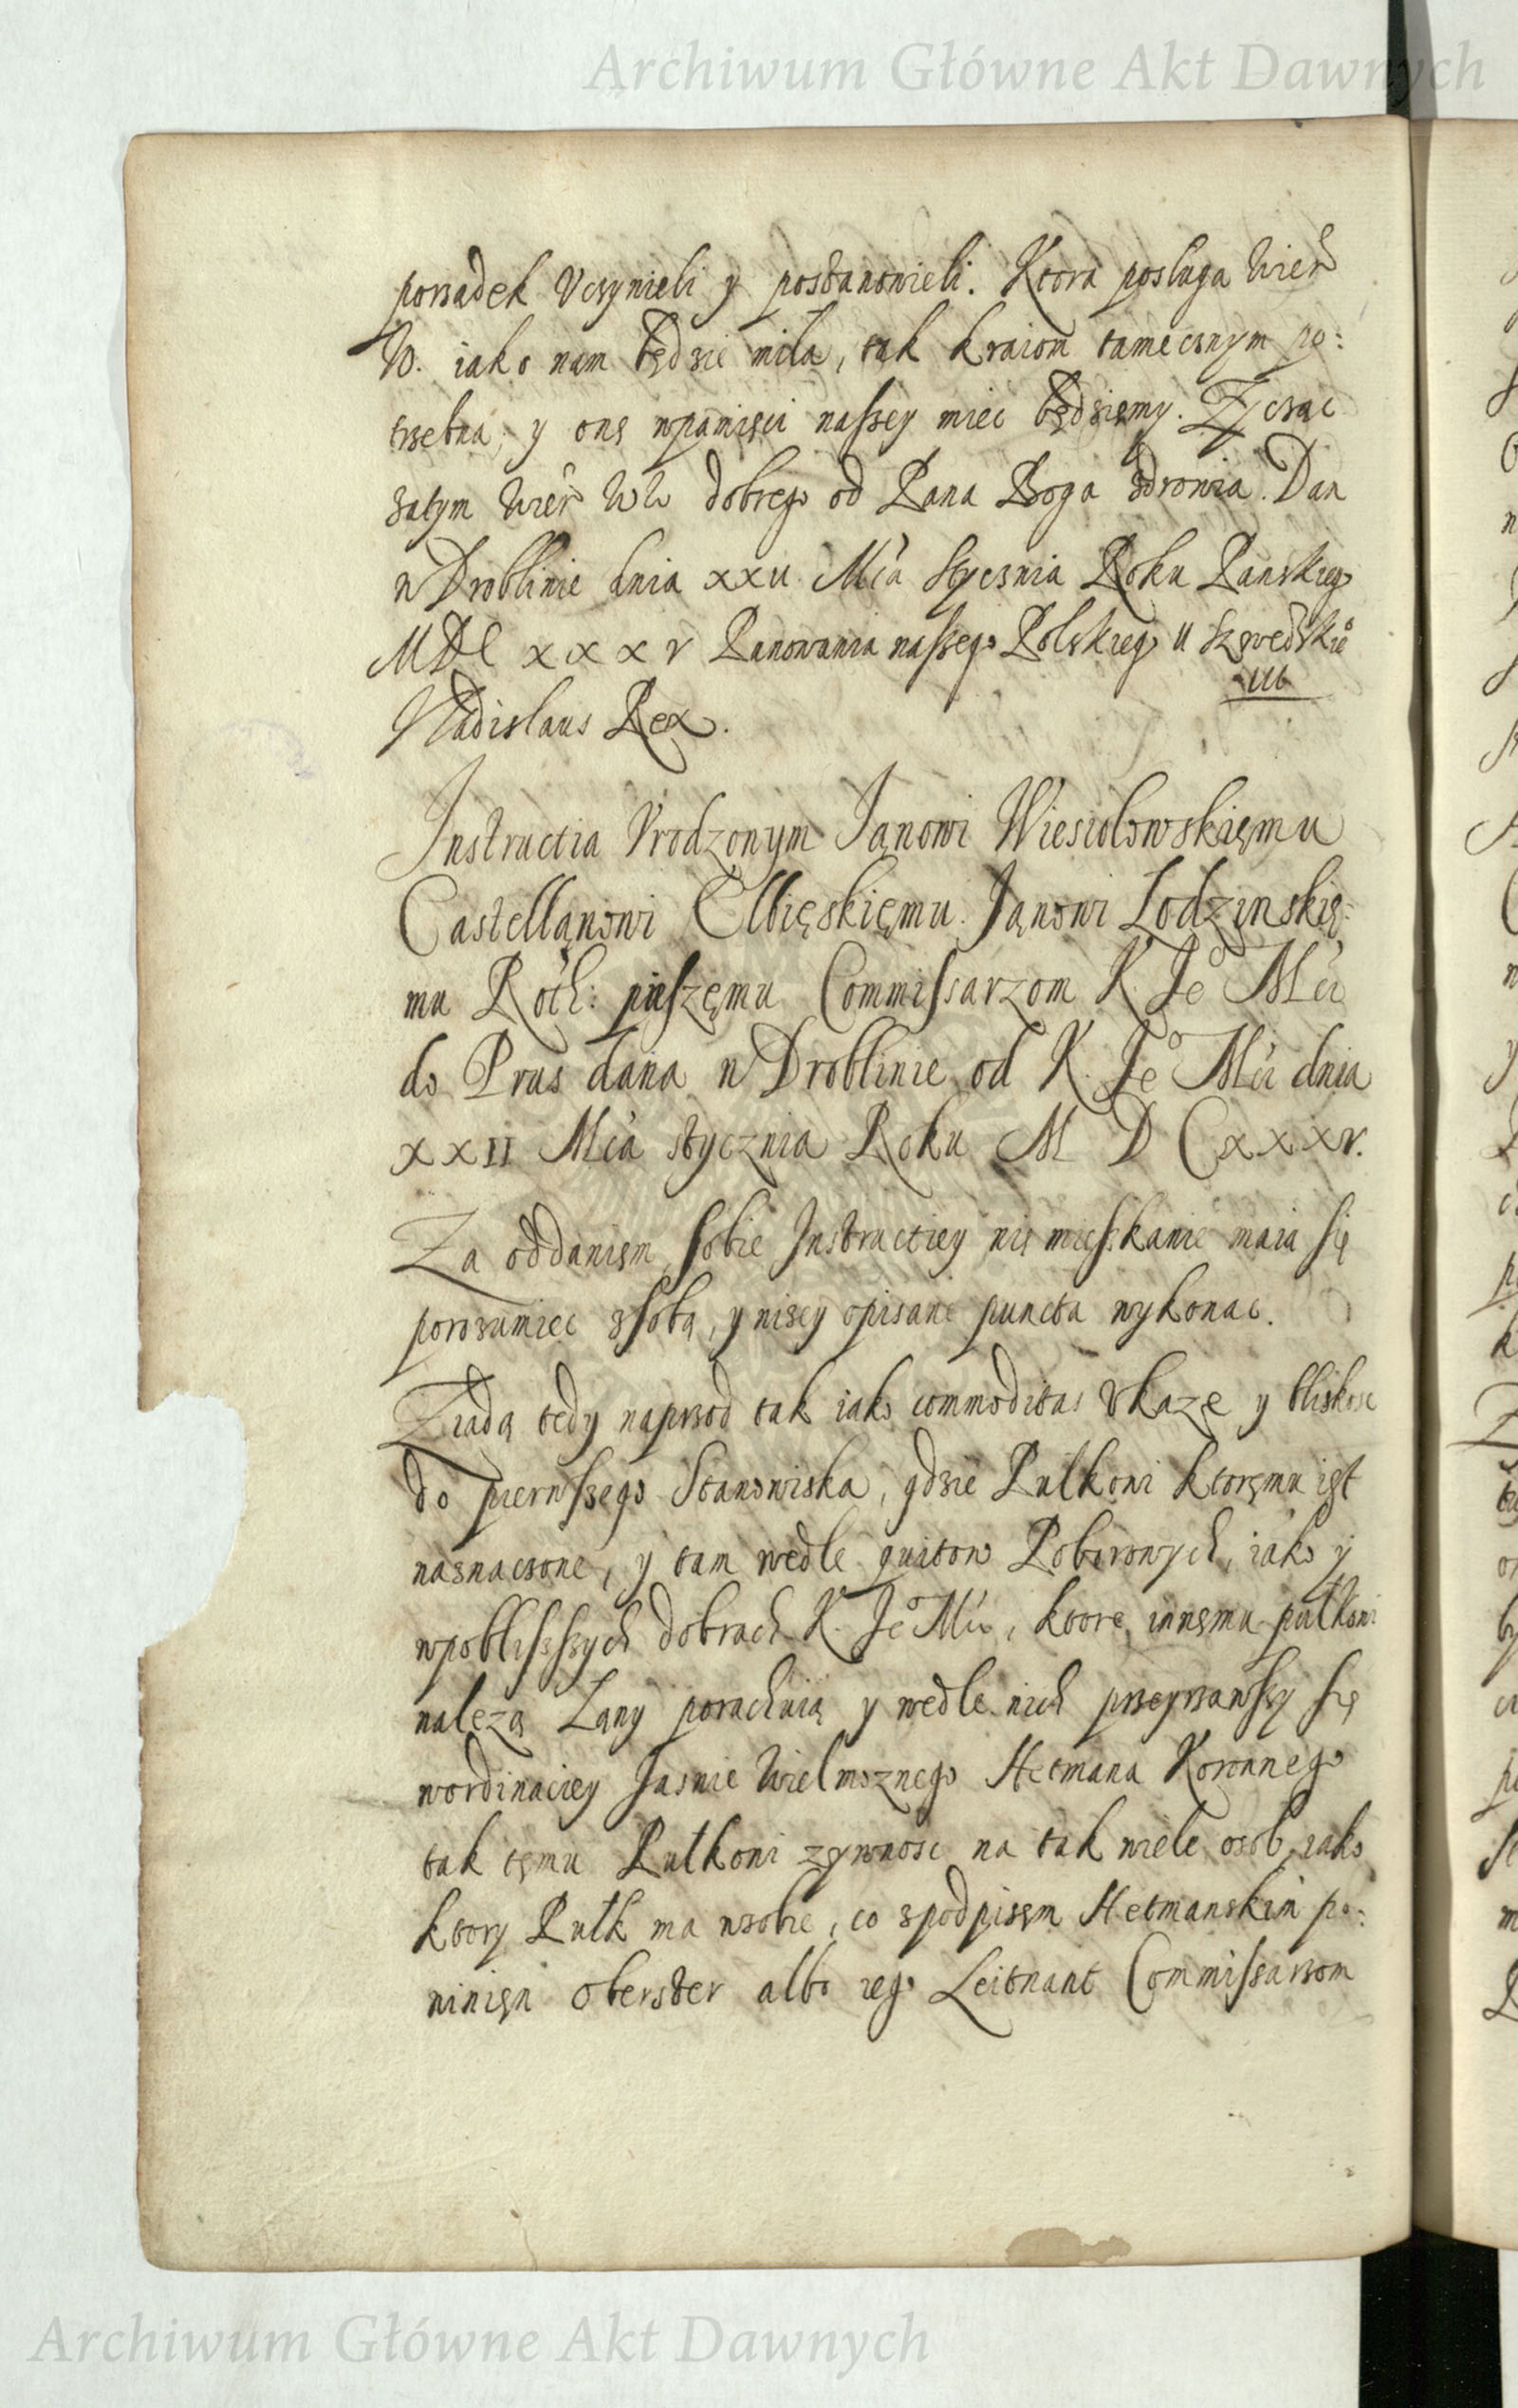 Archiwum Główne Akt Dawnych
porsadek Vcsynieli y postanowieli. Ktora posluga Wier
W. iako nam będsie miła, tak kraiom tamecsnym po:
trsebna, y onę wpamięci nassey miec będsięmy. Zycsąc
satym Wier W W dobrego od Pana Boga sdrowia. Dan
w Droblinie dnia xxii Mca Stycsnia Roku Panskiego
MDC xxxv Panowania nassego Polskiego ii Szwedskie
iii
Vladislaus Rex.
Instructia Vrodzonym Janowi Wiesiolowskięmu
Castellanowi Elbięskięmu. Janowi Lodzinskię:
mu Roth: pieszęmu Commissarzom K. Je Mci
do Prus dana w Droblinie od K. Je Mci dnia
xxII Mca stycznia Roku M D C xxxv.
Za oddanięm sobie Instructiey nię miesskanie maia się
porosumiec ssobą, y nisey opisane puncta wykonac.
Ziadą tedy naprsod tak iako commoditas Vkaze y bliskosc
do pierwssego Stanowiska, gdsie Pułkowi ktoręmu ięst
nasnacsone, y tam wedle quitow Poborowych, iako y
wpoblissych dobrach K. Je Mci, ktore innęmu pułkowi
nalezą Lany porachuią y wedle nich prseyrsawssy się
wordinaciey Jasnie Wielmoznego Hetmana Koronnego
tak tęmu Pułkowi zywnosc na tak wiele osob, iako
ktory Pułk ma wsobie, co spodpisęm Hetmanskim po:
winięn Oberster albo iego Leitnant Commissarsom
Archiwum Główne Akt Dawnych